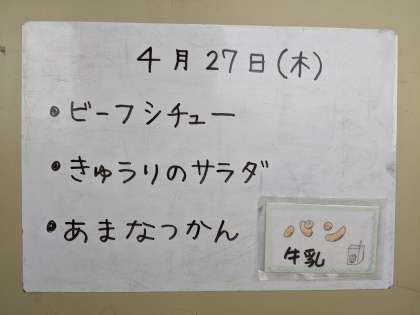 4月27日(木)
・ビーフシチュー
・きゅうりのサラダ
・あまなつかん
パン
牛乳